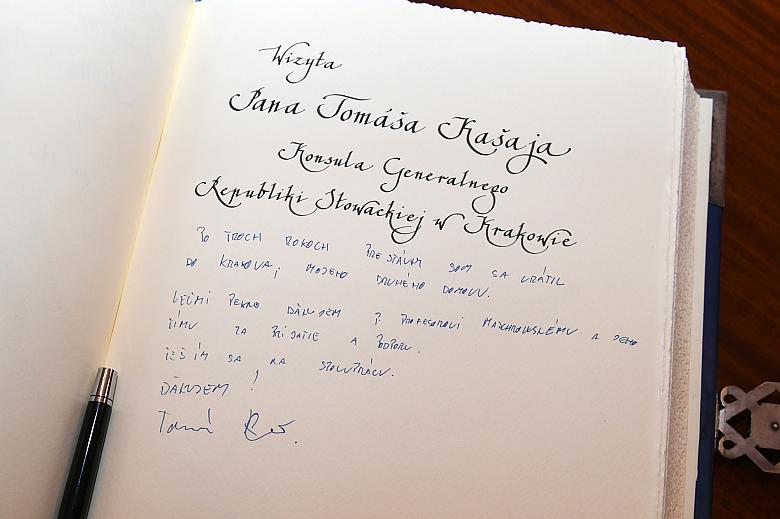 Wizyta
Pana Tomáša Kašaja
Konsula Generalnego
Republiki Słowackiej w Krakowie
PO TROCH ROKOCH PRESTÁVKY SOM SA VRÁTIL
DO KRAKOVA, MOJEHO DRUHÉHO DOMOVU.
VEĽMI PEKNE ĎAKUJEM P. PROFESOROVI MACHROWSKÉMU A JEHO
TÍMU ZA PRIJATIE A PODPORU.
TEŠÍM SA NA SPOLUPRÁCU.
ĎAKUJEM!
Tomáš